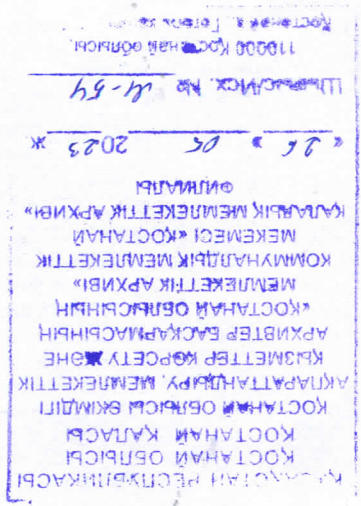 ҚАЗАҚСТАН РЕСПУБЛИКАСЫ
ҚОСТАНАЙ ОБЛЫСЫ
ҚОСТАНАЙ ҚАЛАСЫ
ҚОСТАНАЙ ОБЛЫСЫ ӘКІМДІГІ
АҚПАРАТТАНДЫРУ, МЕМЛЕКЕТТІК
ҚЫЗМЕТТЕР КӨРСЕТУ ЖӘНЕ
АРХИВТЕР БАСҚАРМАСЫНЫҢ
«ҚОСТАНАЙ ОБЛЫСЫНЫҢ
МЕМЛЕКЕТТІК АРХИВІ»
КОММУНАЛДЫҚ МЕМЛЕКЕТТІК
МЕКЕМЕСІ «ҚОСТАНАЙ
ҚАЛАЛЫҚ МЕМЛЕКЕТТІК АРХИВІ»
ФИЛИАЛЫ
« 26 » 05 2023 ж
Шығыс/Исх. №
110000 Қостанай облысы,
Қостанай к., Гоголь